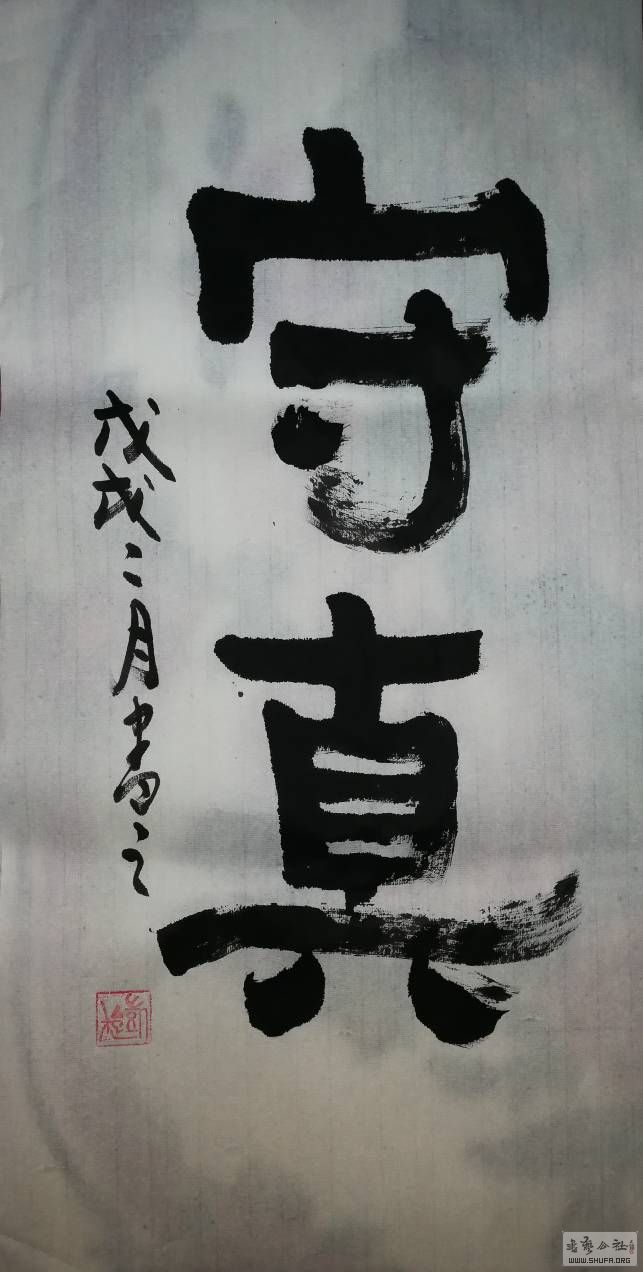 守真
戊戌二月书之
書藝公社
WWW.SHUFA.ORG